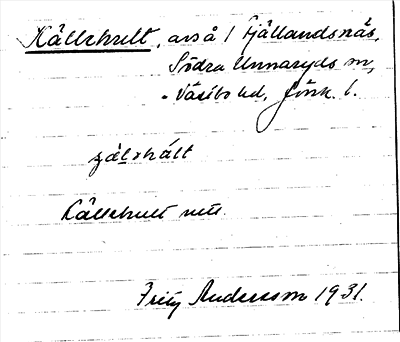 Källehult, avsö i Hjällandsnäs,
Södra Unnaryds sn,
Västbo hd, Jönk. l.
Källehult
Fritz Andersson 1931.